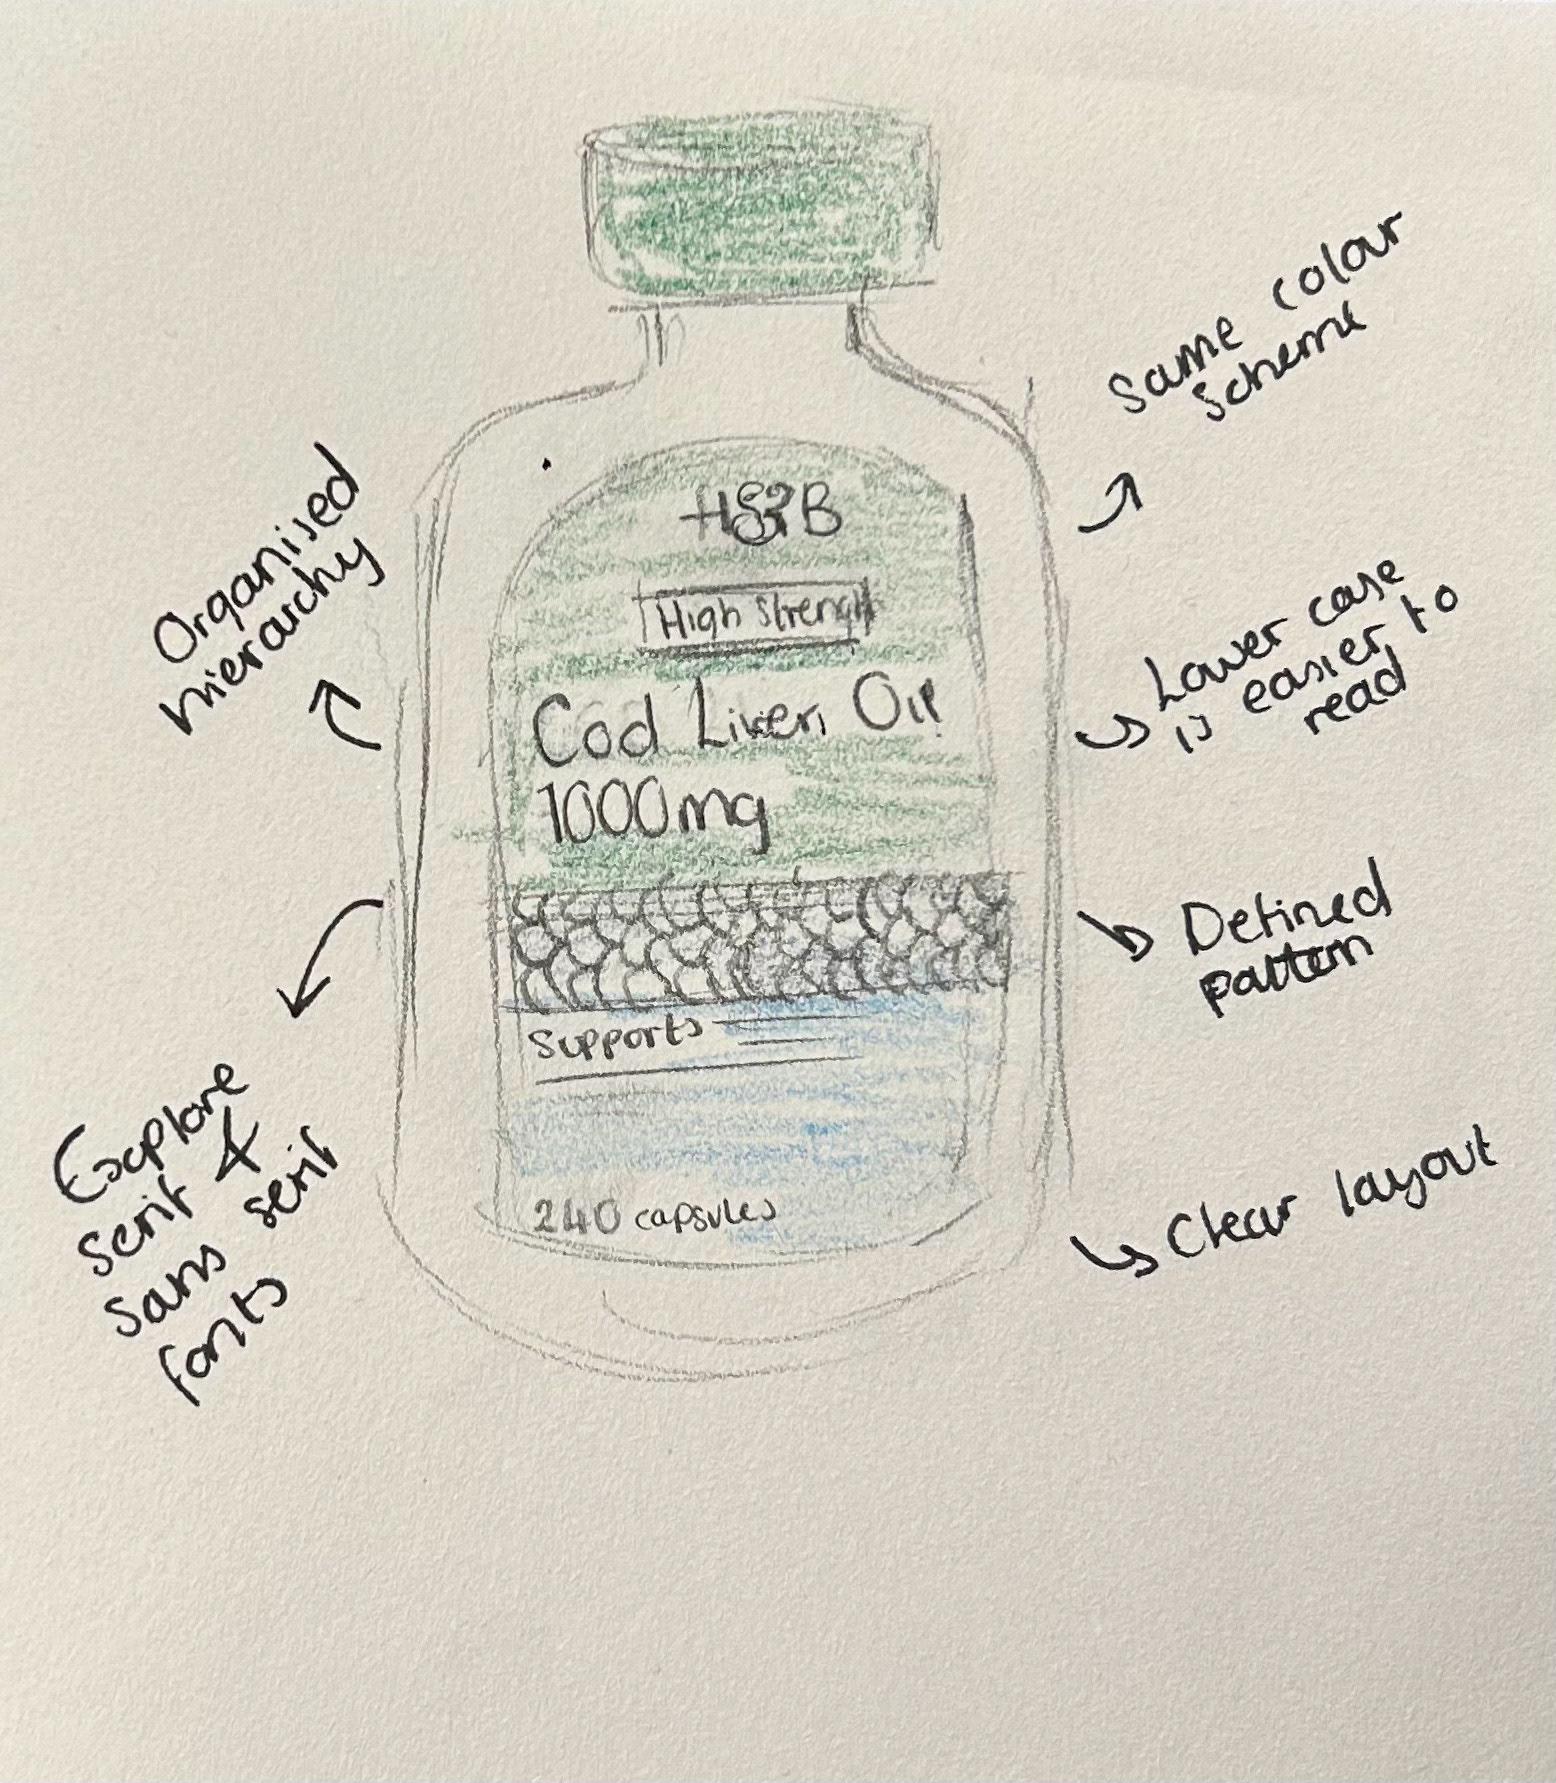 Same colour
scheme
H&B
High Strength
Organised
hierarchy
Cod Liver Oil
1000mg
Lower case
is easier to
read
Defined
pattern
Supports
Explore
serif &
sans serif
fonts
240 capsules
Clear layout